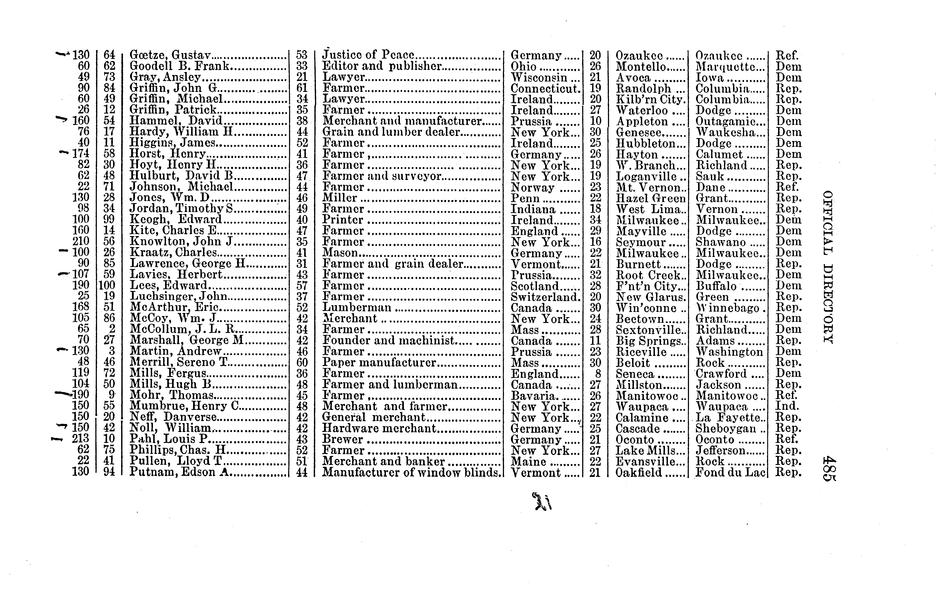 130 64 Gœtze, Gustav 53 Justice of Peace Germany 20 Ozaukee Ozaukee Ref.
60 62 Goodell B. Frank 33 Editor and publisher Ohio 26 Montello Marquette Dem
49 73 Gray, Ansley 21 Lawyer Wisconsin 21 Avoca Iowa Dem
90 84 Griffin, John G 61 Farmer Connecticut. 19 Randolph Columbia Rep.
60 49 Griffin, Michael 34 Lawyer Ireland 20 Kilb'rn City. Columbia Rep.
26 12 Griffin, Patrick 35 Farmer Ireland 27 Waterloo Dodge Dem
160 54 Hammel, David 38 Merchant and manufacturer Prussia 10 Appleton Outagamic Dem
76 17 Hardy, William H 44 Grain and lumber dealer New York 30 Genesee Waukesha Dem
40 11 Higgins, James 52 Farmer Ireland 25 Hubbleton Dodge Dem
174 58 Horst, Henry 41 Farmer Germany 26 Hayton Calumet Dem
82 30 Hoyt, Henry H 36 Farmer New York 19 W. Branch Richland Rep.
62 48 Hulburt, David B 47 Farmer and surveyor New York 19 Loganville Sauk Rep.
22 71 Johnson, Michael 44 Farmer Norway 23 Mt. Vernon Dane Ref.
130 28 Jones, Wm. D 46 Miller Penn 22 Hazel Green Grant Rep.
98 34 Jordan, Timothy S 49 Farmer Indiana 18 West Lima Vernon Rep.
100 99 Keogh, Edward 40 Printer Ireland 34 Milwaukee Milwaukee Dem
160 14 Kite, Charles E 47 Farmer England 29 Mayville Dodge Dem
210 56 Knowlton, John J 35 Farmer New York 16 Seymour Shawano Dem
100 26 Kraatz, Charles 41 Mason Germany 22 Milwaukee Milwaukee Dem
90 85 Lawrence, George H 31 Farmer and grain dealer Vermont 21 Burnett Dodge Rep.
107 59 Lavies, Herbert 43 Farmer Prussia 32 Root Creek Milwaukee Dem
190 100 Lees, Edward 57 Farmer Scotland 28 F'nt'n City Buffalo Dem
25 19 Luchsinger, John 37 Farmer Switzerland. 20 New Glarus. Green Rep.
168 51 McArthur, Eric 52 Lumberman Canada 30 Win'conne Winnebago Rep.
105 86 McCoy, Wm. J 42 Merchant New York 24 Beetown Grant Dem
65 2 McCollum, J. L. R 34 Farmer Mass 28 Sextonville Richland Dem
70 27 Marshall, George M 42 Founder and machinist Canada 11 Big Springs Adams Rep.
130 3 Martin, Andrew 46 Farmer Prussia 23 Riceville Washington Dem
48 46 Merrill, Sereno T 60 Paper manufacturer Mass 30 Beloit Rock Rep.
119 72 Mills, Fergus 36 Farmer England 8 Seneca Crawford Dem
104 50 Mills, Hugh B 48 Farmer and lumberman Canada 27 Millston Jackson Rep.
190 9 Mohr, Thomas 45 Farmer Bavaria. 26 Manitowoc Manitowoc Ref.
150 55 Mumbrue, Henry C 48 Merchant and farmer New York 27 Waupaca Waupaca Ind.
150 20 Neff, Danverse 42 General merchant New York 22 Calamine La Fayette Rep.
150 42 Noll, William 42 Hardware merchant Germany 25 Cascade Sheboygan Rep.
213 10 Pahl, Louis P 43 Brewer Germany 21 Oconto Oconto Ref.
62 75 Phillips, Chas. H 52 Farmer New York 27 Lake Mills Jefferson Rep.
22 41 Pullen, Lloyd T 51 Merchant and banker Maine 22 Evansville Rock Rep.
130 94 Putnam, Edson A 44 Manufacturer of window blinds. Vermont 21 Oakfield Fond du Lac Rep.
OFFICIAL DIRECTORY
485
21